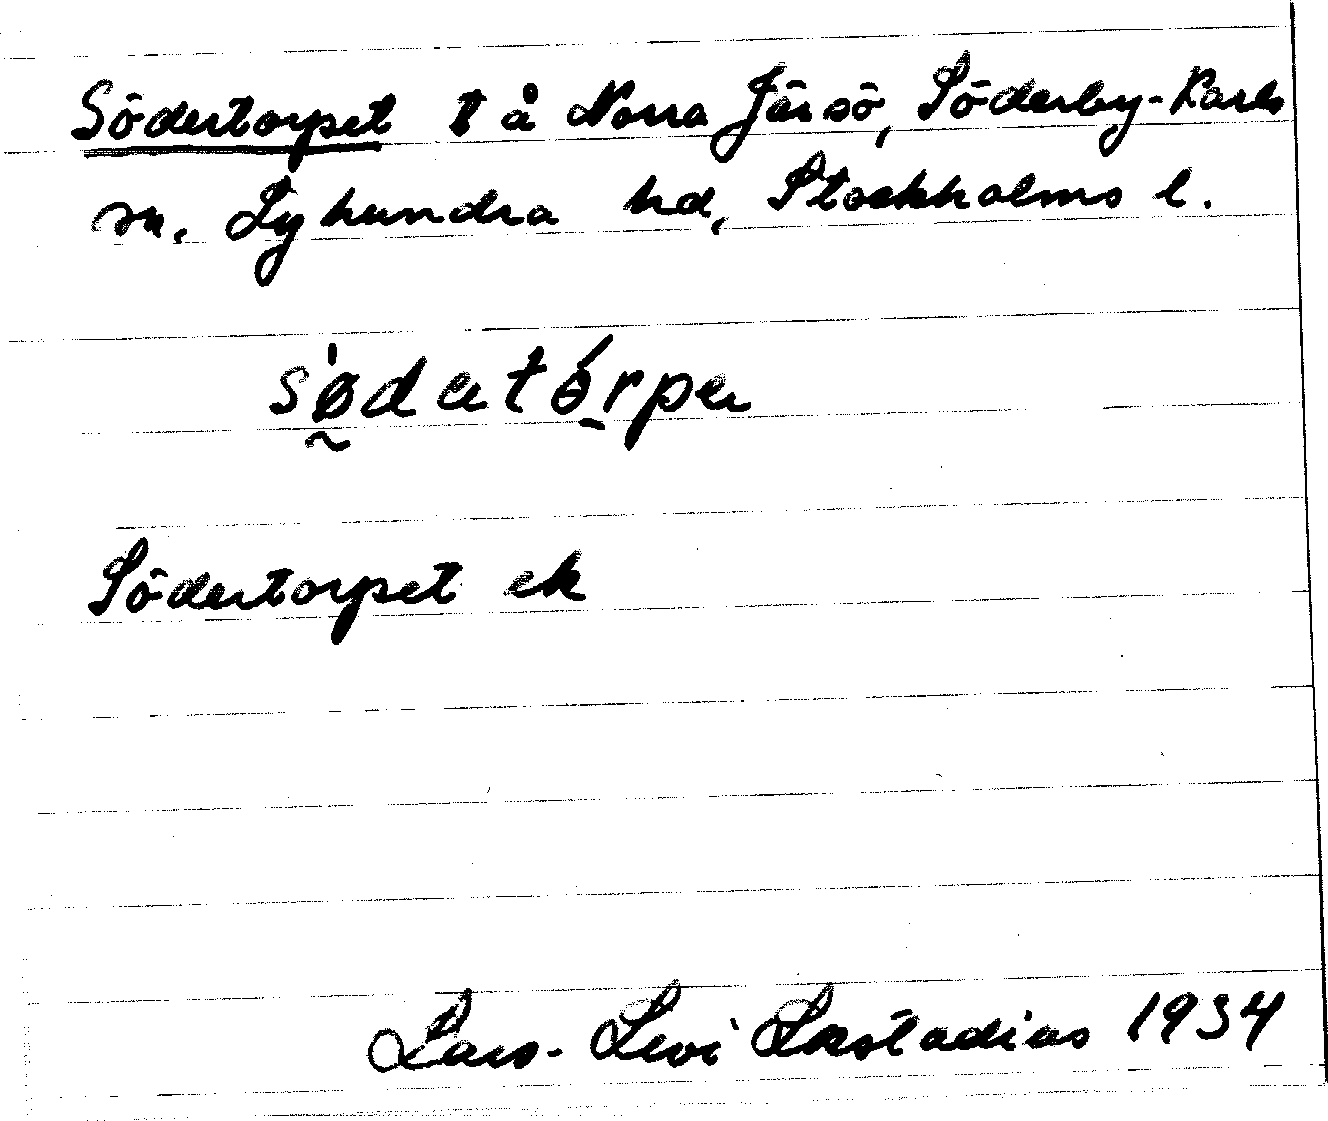 Södertorpet t å Norra Järsö, Söderby-Karls
sn. Lyhundra hd, Stockholms l.
sø̰̍dertó̠rper
Södertorpet ek
Lars-Levi Læstadius 1934